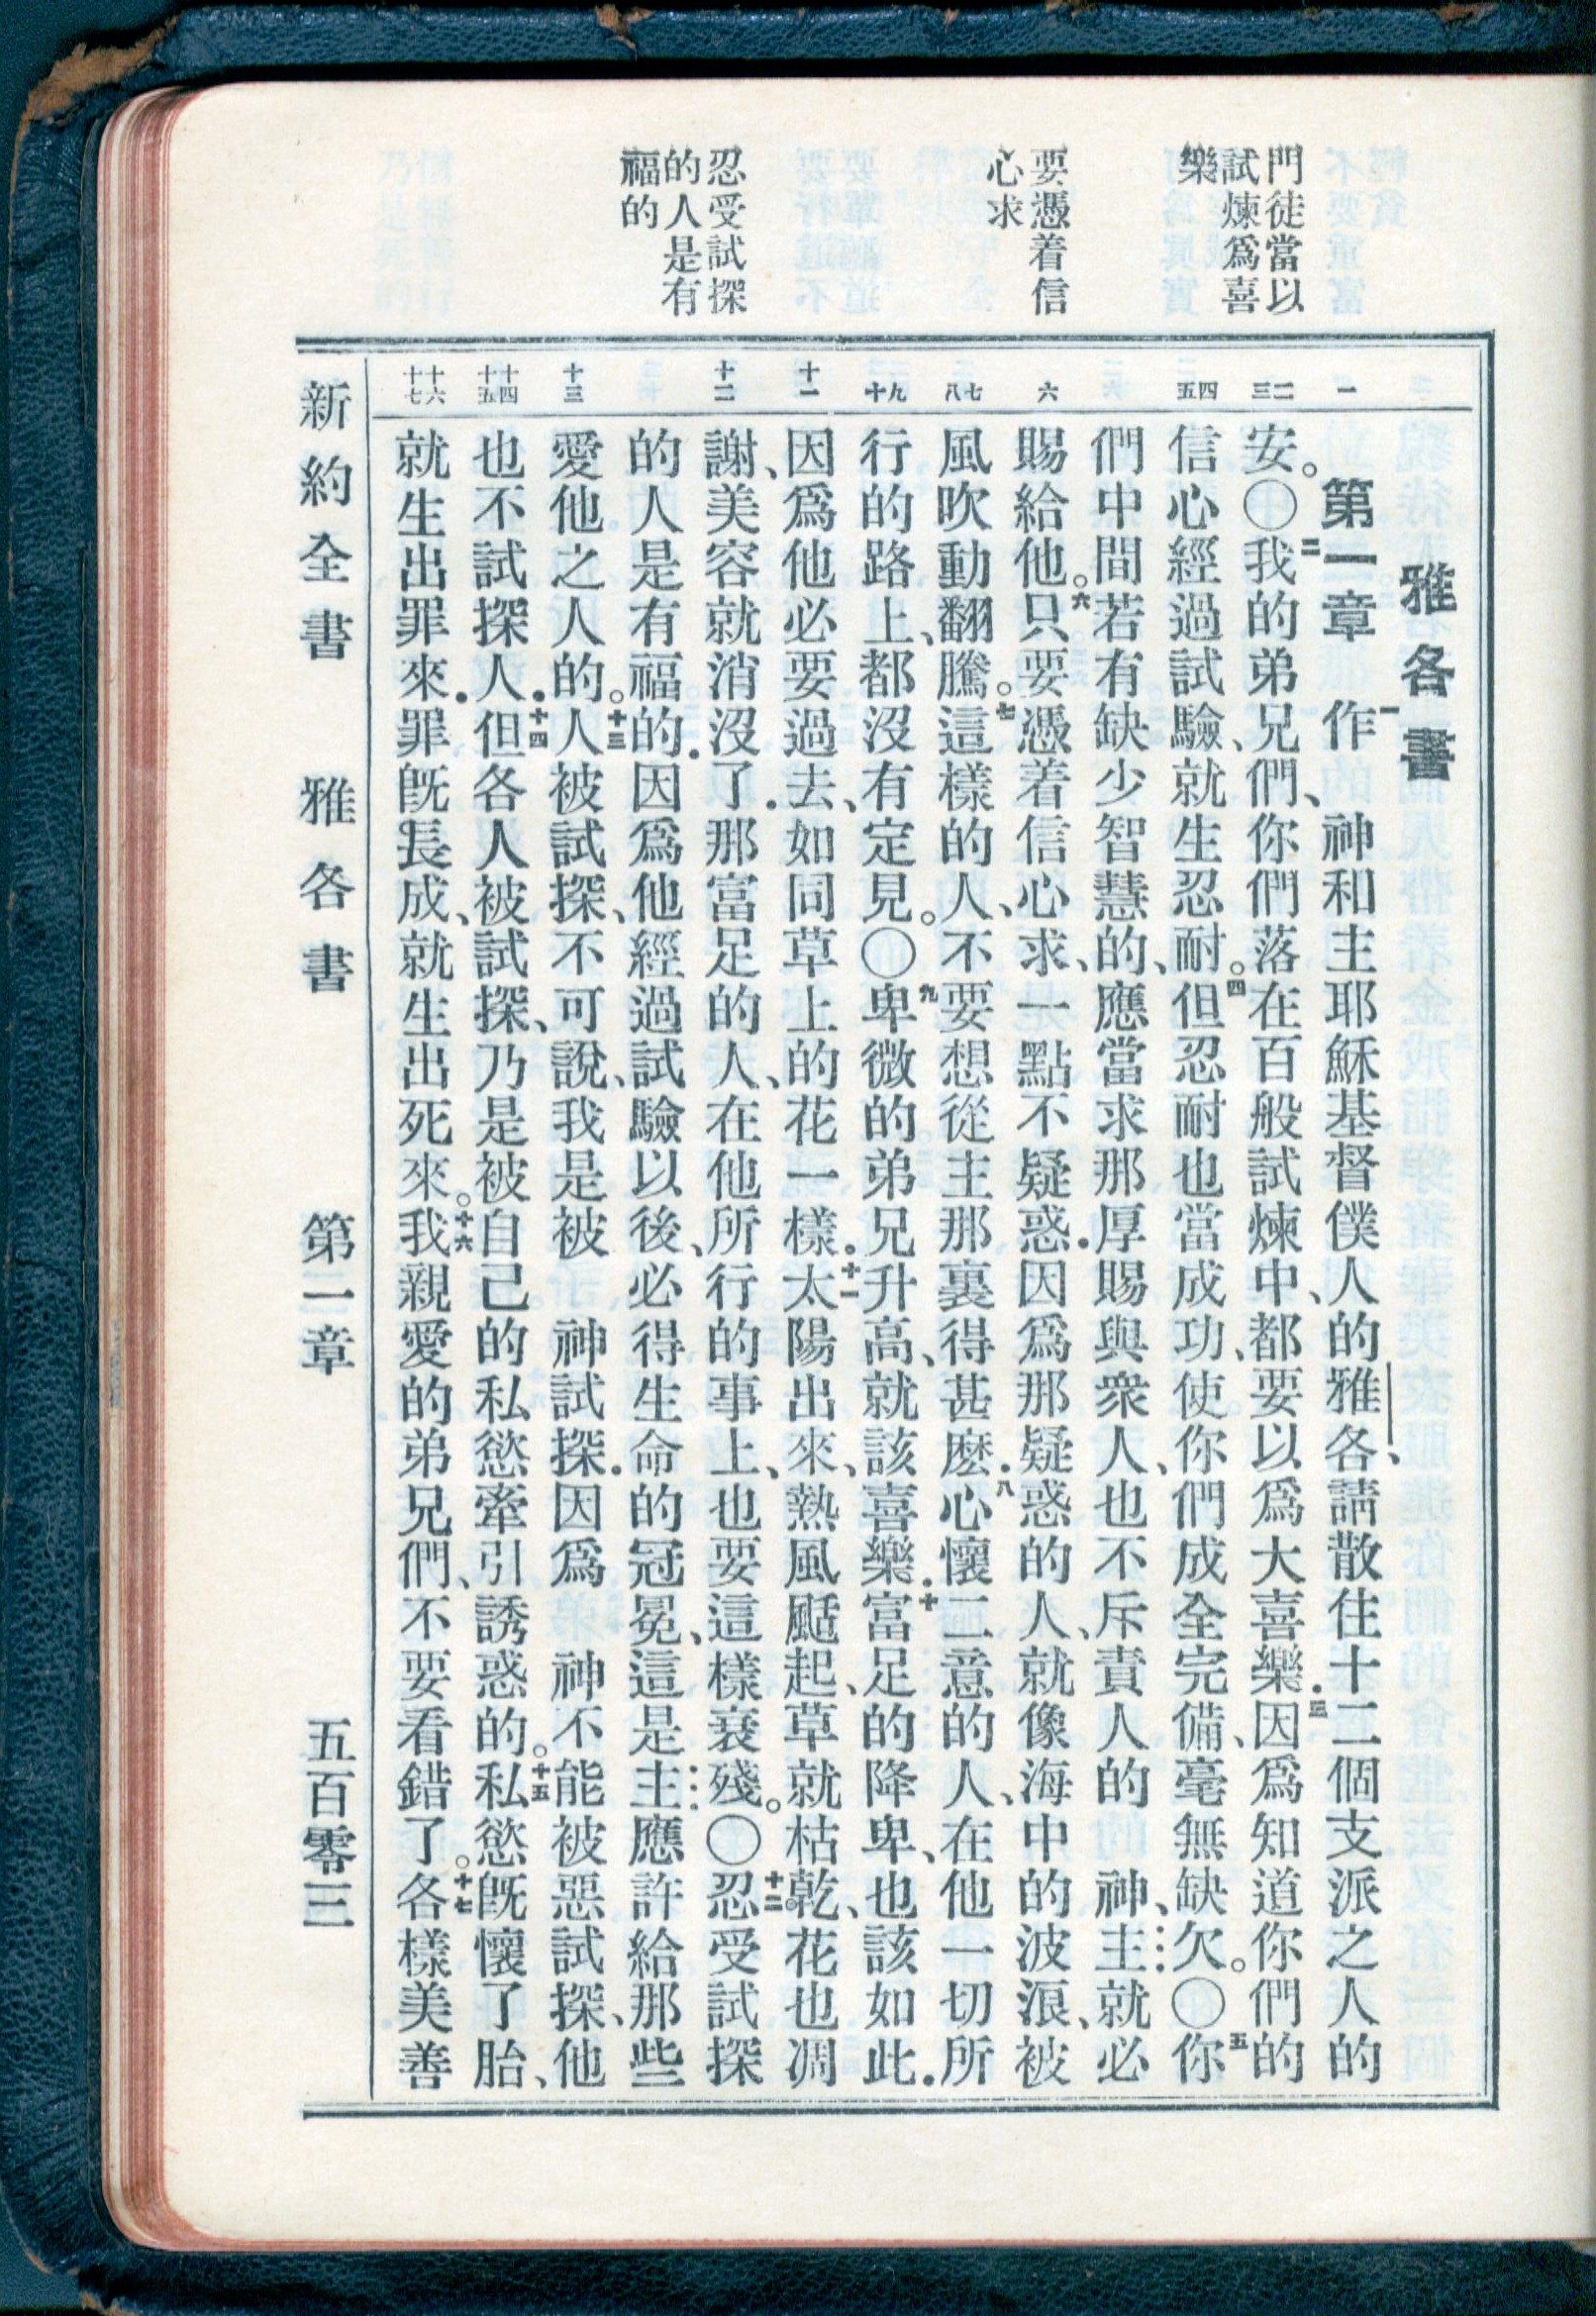 門徒當以
試煉爲喜
樂
要憑着信
心求
忍受試探
的人是有
福的
一
二
三
四
五
六
七
八
九
十
十一
十二
十三
十四
十五
十六
十七
雅各書
第一章 一作 神和主耶穌基督僕人的雅各、請散住十二個支派之人的
安。〇二我的弟兄們、你們落在百般試煉中、都要以爲大喜樂．三因爲知道你們的
信心經過試驗、就生忍耐。四但忍耐也當成功、使你們成全完備、毫無缺欠。〇五你
們中間若有缺少智慧的、應當求那厚賜與衆人、也不斥責人的 神、主就必
賜給他。六只要憑着信心求、一點不疑惑．因爲那疑惑的人、就像海中的波浪、被
風吹動翻騰。七這樣的人、不要想從主那裏得甚麽．八心懷二意的人、在他一切所
行的路上、都沒有定見。〇九卑微的弟兄升高、就該喜樂．十富足的降卑、也該如此．
因爲他必要過去、如同草上的花一樣．十一太陽出來、熱風颳起、草就枯乾、花也凋
謝、美容就消沒了．那富足的人、在他所行的事上、也要這樣衰殘。〇十二忍受試探
的人是有福的．因爲他經過試驗以後、必得生命的冠冕、這是主應許給那些
愛他之人的。十三人被試探、不可說、我是被 神試探．因爲 神不能被惡試探、他
也不試探人．十四但各人被試探、乃是被自己的私慾牽引誘惑的。十五私慾既懷了胎、
就生出罪來．罪既長成、就生出死來。十六我親愛的弟兄們、不要看錯了。十七各樣美善
新約全書 雅各書 第一章 五百零三